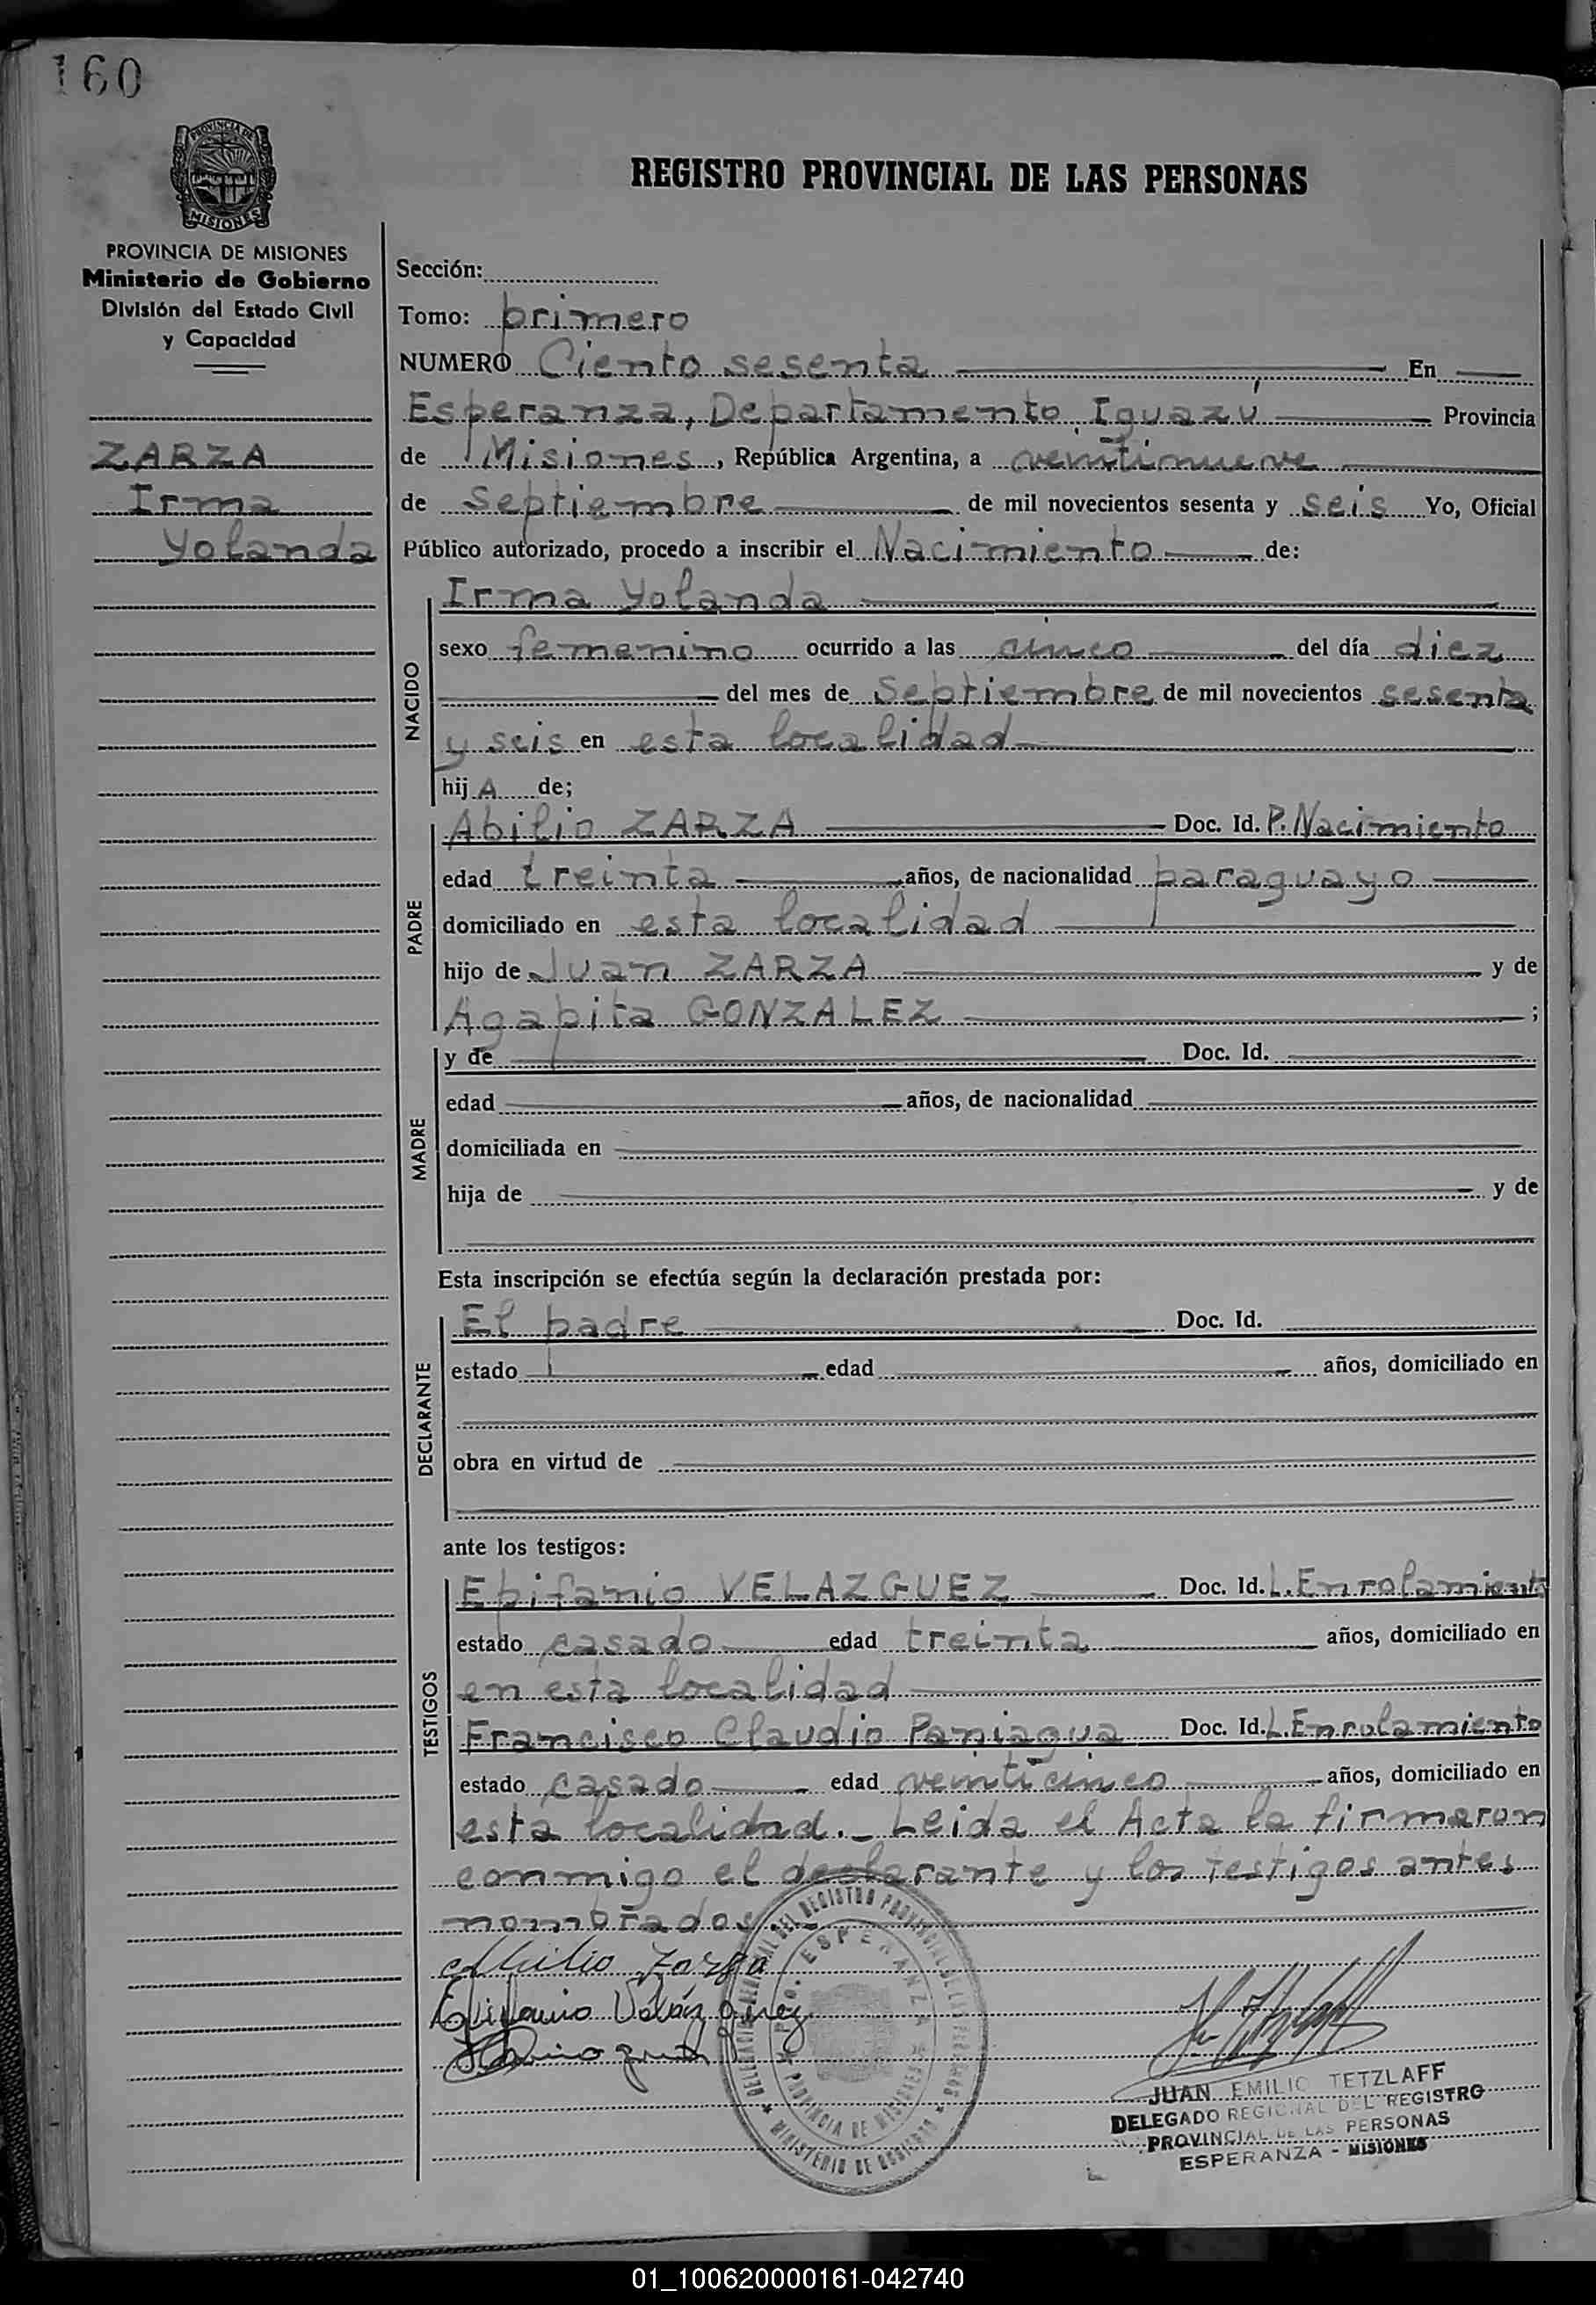 160
PROVINCIA DE
MISIONES
REGISTRO PROVINCIAL DE LAS PERSONAS
PROVINCIA DE MISIONES
Ministerio de Gobierno
División del Estado Civil
y Capacidad
ZARZA
Irma
Yolanda
Sección:
Tomo: primero
NUMERO Ciento sesenta En
Esperanza, Departamento Iguazú Provincia
de Misiones, República Argentina, a veintinueve
de Septiembre de mil novecientos sesenta y seis Yo, Oficial
Público autorizado, procedo a inscribir el Nacimiento de:
NACIDO
Irma Yolanda
sexo femenino ocurrido a las cinco del día diez
del mes de Septiembre de mil novecientos sesenta
y seis en esta localidad
hijA de;
PADRE
Abilio ZARZA Doc. Id. P. Nacimiento
edad treinta años, de nacionalidad paraguayo
domiciliado en esta localidad
hijo de Juan ZARZA y de
Agapita GONZALEZ ;
MADRE
y de Doc. Id.
edad años, de nacionalidad
domiciliada en
hija de y de
Esta inscripción se efectúa según la declaración prestada por:
DECLARANTE
El padre Doc. Id.
estado edad años, domiciliado en
obra en virtud de
ante los testigos:
TESTIGOS
Epifanio VELAZGUEZ Doc. Id. L. Enrolamiento
estado casado edad treinta años, domiciliado en
en esta localidad
Francisco Claudio Paniagua Doc. Id. L. Enrolamiento
estado casado edad veinticinco años, domiciliado en
esta localidad._ Leida el Acta la firmaron
conmigo el declarante y los testigos antes
nombrados._
Abilio Zarza
Epifanio Velázquez
DEL REGISTRO PROVINCIAL DE LAS PERSONAS
ESPERANZA
PROVINCIA DE MISIONES
MINISTERIO DE GOBIERNO
JUAN EMILIO TETZLAFF
DELEGADO REGIONAL DEL REGISTRO
PROVINCIAL DE LAS PERSONAS
ESPERANZA - MISIONES
01_100620000161-042740